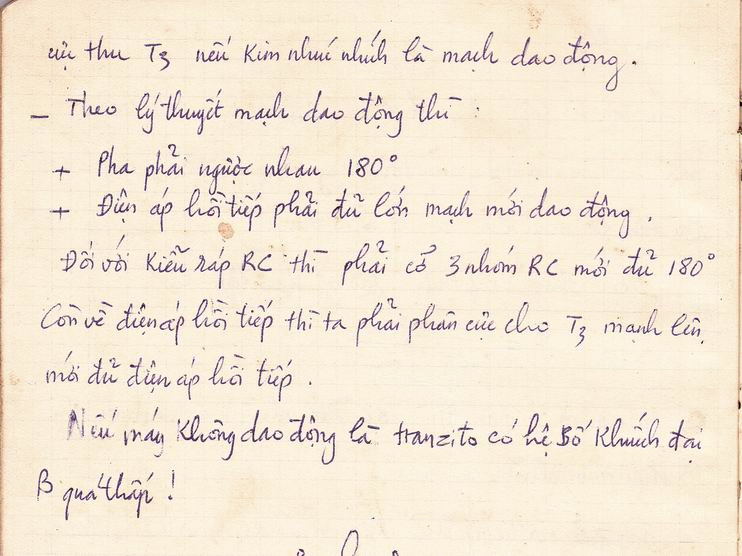 cực thu T3 nếu Kim nhúc nhích là mạch dao động.
- Theo lý thuyết mạch dao động thì :
+ Pha phải ngược nhau 180°
+ Điện áp hồi tiếp phải đủ lớn mạch mới dao động.
Đối với Kiểu ráp RC thì phải có 3 nhóm RC mới đủ 180°
Còn về điện áp hồi tiếp thì ta phải phân cực cho T3 mạnh lên,
mới đủ điện áp hồi tiếp.
Nếu máy Không dao động là tranzito có hệ Số Khuếch đại
β quá thấp !